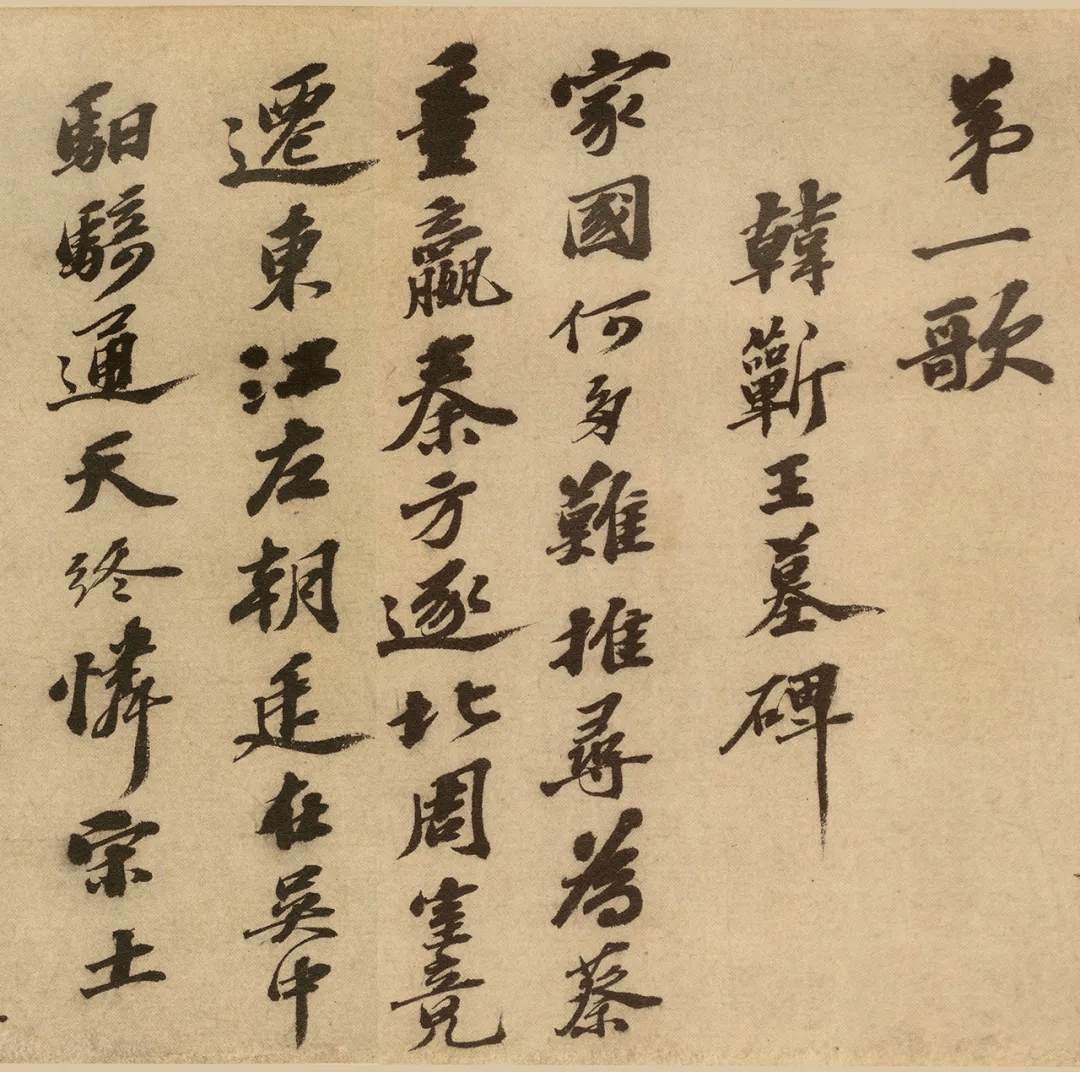 苐一歌
韓蘄王墓碑
家國何多難推尋為蔡
童嬴秦方逐北周室竟
遷東江左朝廷在吳中
馹騎通天終憐宋土